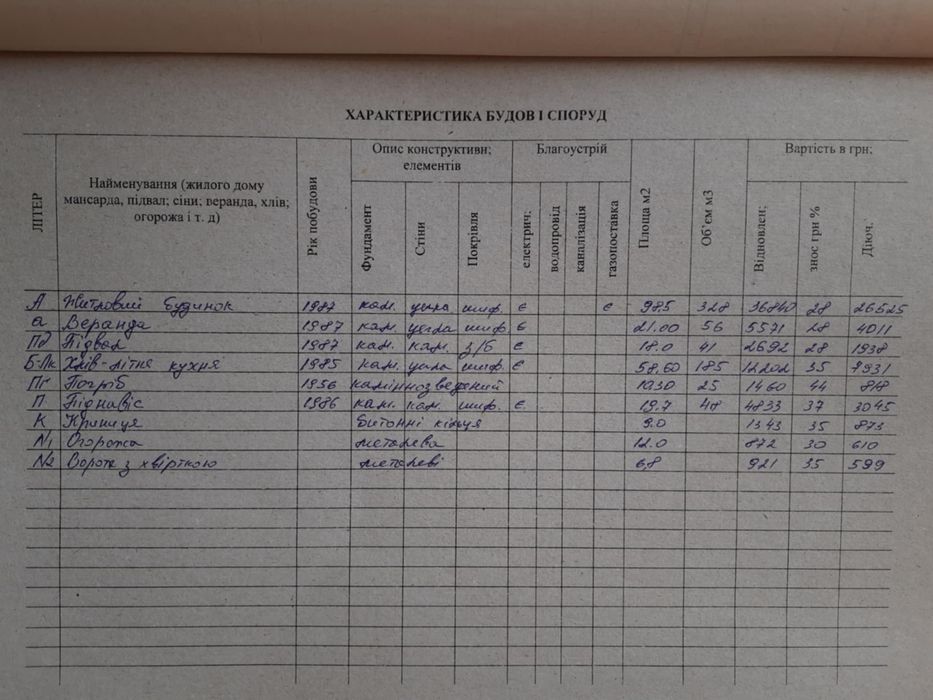 ХАРАКТЕРИСТИКА БУДОВ І СПОРУД
ЛІТЕР
Найменування (жилого дому
мансарда, підвал; сіни; веранда, хлів;
огорожа і т. д)
Рік побудови
Опис конструктивн;
елементів
Фундамент
Стіни
Покрівля
Благоустрій
електрич:
водопровід
каналізація
газопоставка
Площа м2
Об'єм м3
Вартість в грн;
Відновлен;
знос грн %
Діюч.
А Житловий будинок 1987 кам. цегла шиф. є є 98.5 328 36840 28 26525
а Веранда 1987 кам. цегла шиф. є 21.00 56 5571 28 4011
Пд Підвал 1987 кам. кам. з/б є 18.0 41 2692 28 1938
Б-Лк Хлів-літня кухня 1985 кам. цегла шиф. є 58.60 185 12202 35 7931
Пг Погріб 1956 камінно зведений 10.30 25 1460 44 818
П Піднавіс 1986 кам. кам. шиф. є 19.7 48 4833 37 3045
К Криниця битонні кільця 9.0 1343 35 873
N1 Огорожа металева 12.0 872 30 610
N2 Ворота з хвірткою металеві 6,8 921 35 599